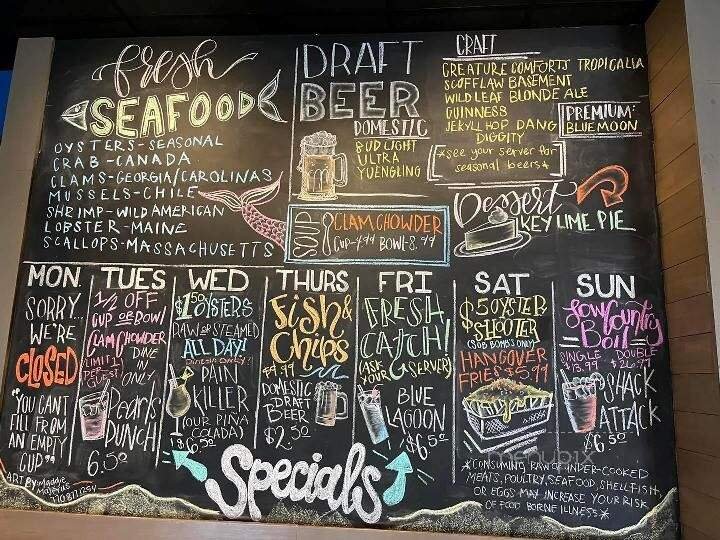 fresh
SEAFOOD
OYSTERS-SEASONAL
CRAB-CANADA
CLAMS-GEORGIA/CAROLINAS
MUSSELS-CHILE
SHRIMP-WILD AMERICAN
LOBSTER-MAINE
SCALLOPS-MASSACHUSETTS
DRAFT
BEER
DOMESTIC
BUD LIGHT
ULTRA
YUENGLING
CRAFT
CREATURE COMFORTS TROPICALIA
SCOFFLAW BASEMENT
WILD LEAF BLONDE ALE
GUINNESS
JEKYLL HOP DANG
DIGGITY
PREMIUM:
BLUE MOON
*see your server for
seasonal beers*
SOUP
CLAM CHOWDER
CUP-4.99 BOWL-8.99
Dessert
KEY LIME PIE
MON
SORRY...
WE'RE
CLOSED
"YOU CANT
FILL FROM
AN EMPTY
CUP"
TUES
1/2 OFF
CUP OR BOWL
CLAM CHOWDER
LIMIT 1
PER GUEST
DINE
IN
ONLY
Pearl's
PUNCH
6.50
WED
$1.50 OYSTERS
RAW OR STEAMED
ALL DAY!
PAIN
KILLER
(OUR PIÑA
COLADA)
$6.50
THURS
Fish &
Chips
DOMESTIC
DRAFT
BEER
$2.50
FRI
FRESH
CATCH!
(ASK
YOUR SERVER)
BLUE
LAGOON
$6.50
SAT
$5 OYSTER
SHOOTER
(SOB BOMBS ONLY)
HANGOVER
FRIES $5.99
SUN
Low Country
Boil
SINGLE DOUBLE
$13.99 $26.99
SHACK
ATTACK
$6.50
Specials
*CONSUMING RAW OR UNDER-COOKED
MEATS, POULTRY, SEAFOOD, SHELLFISH,
OR EGGS MAY INCREASE YOUR RISK
OF FOOD BORNE ILLNESS*
ART BY: Maddie
menupix